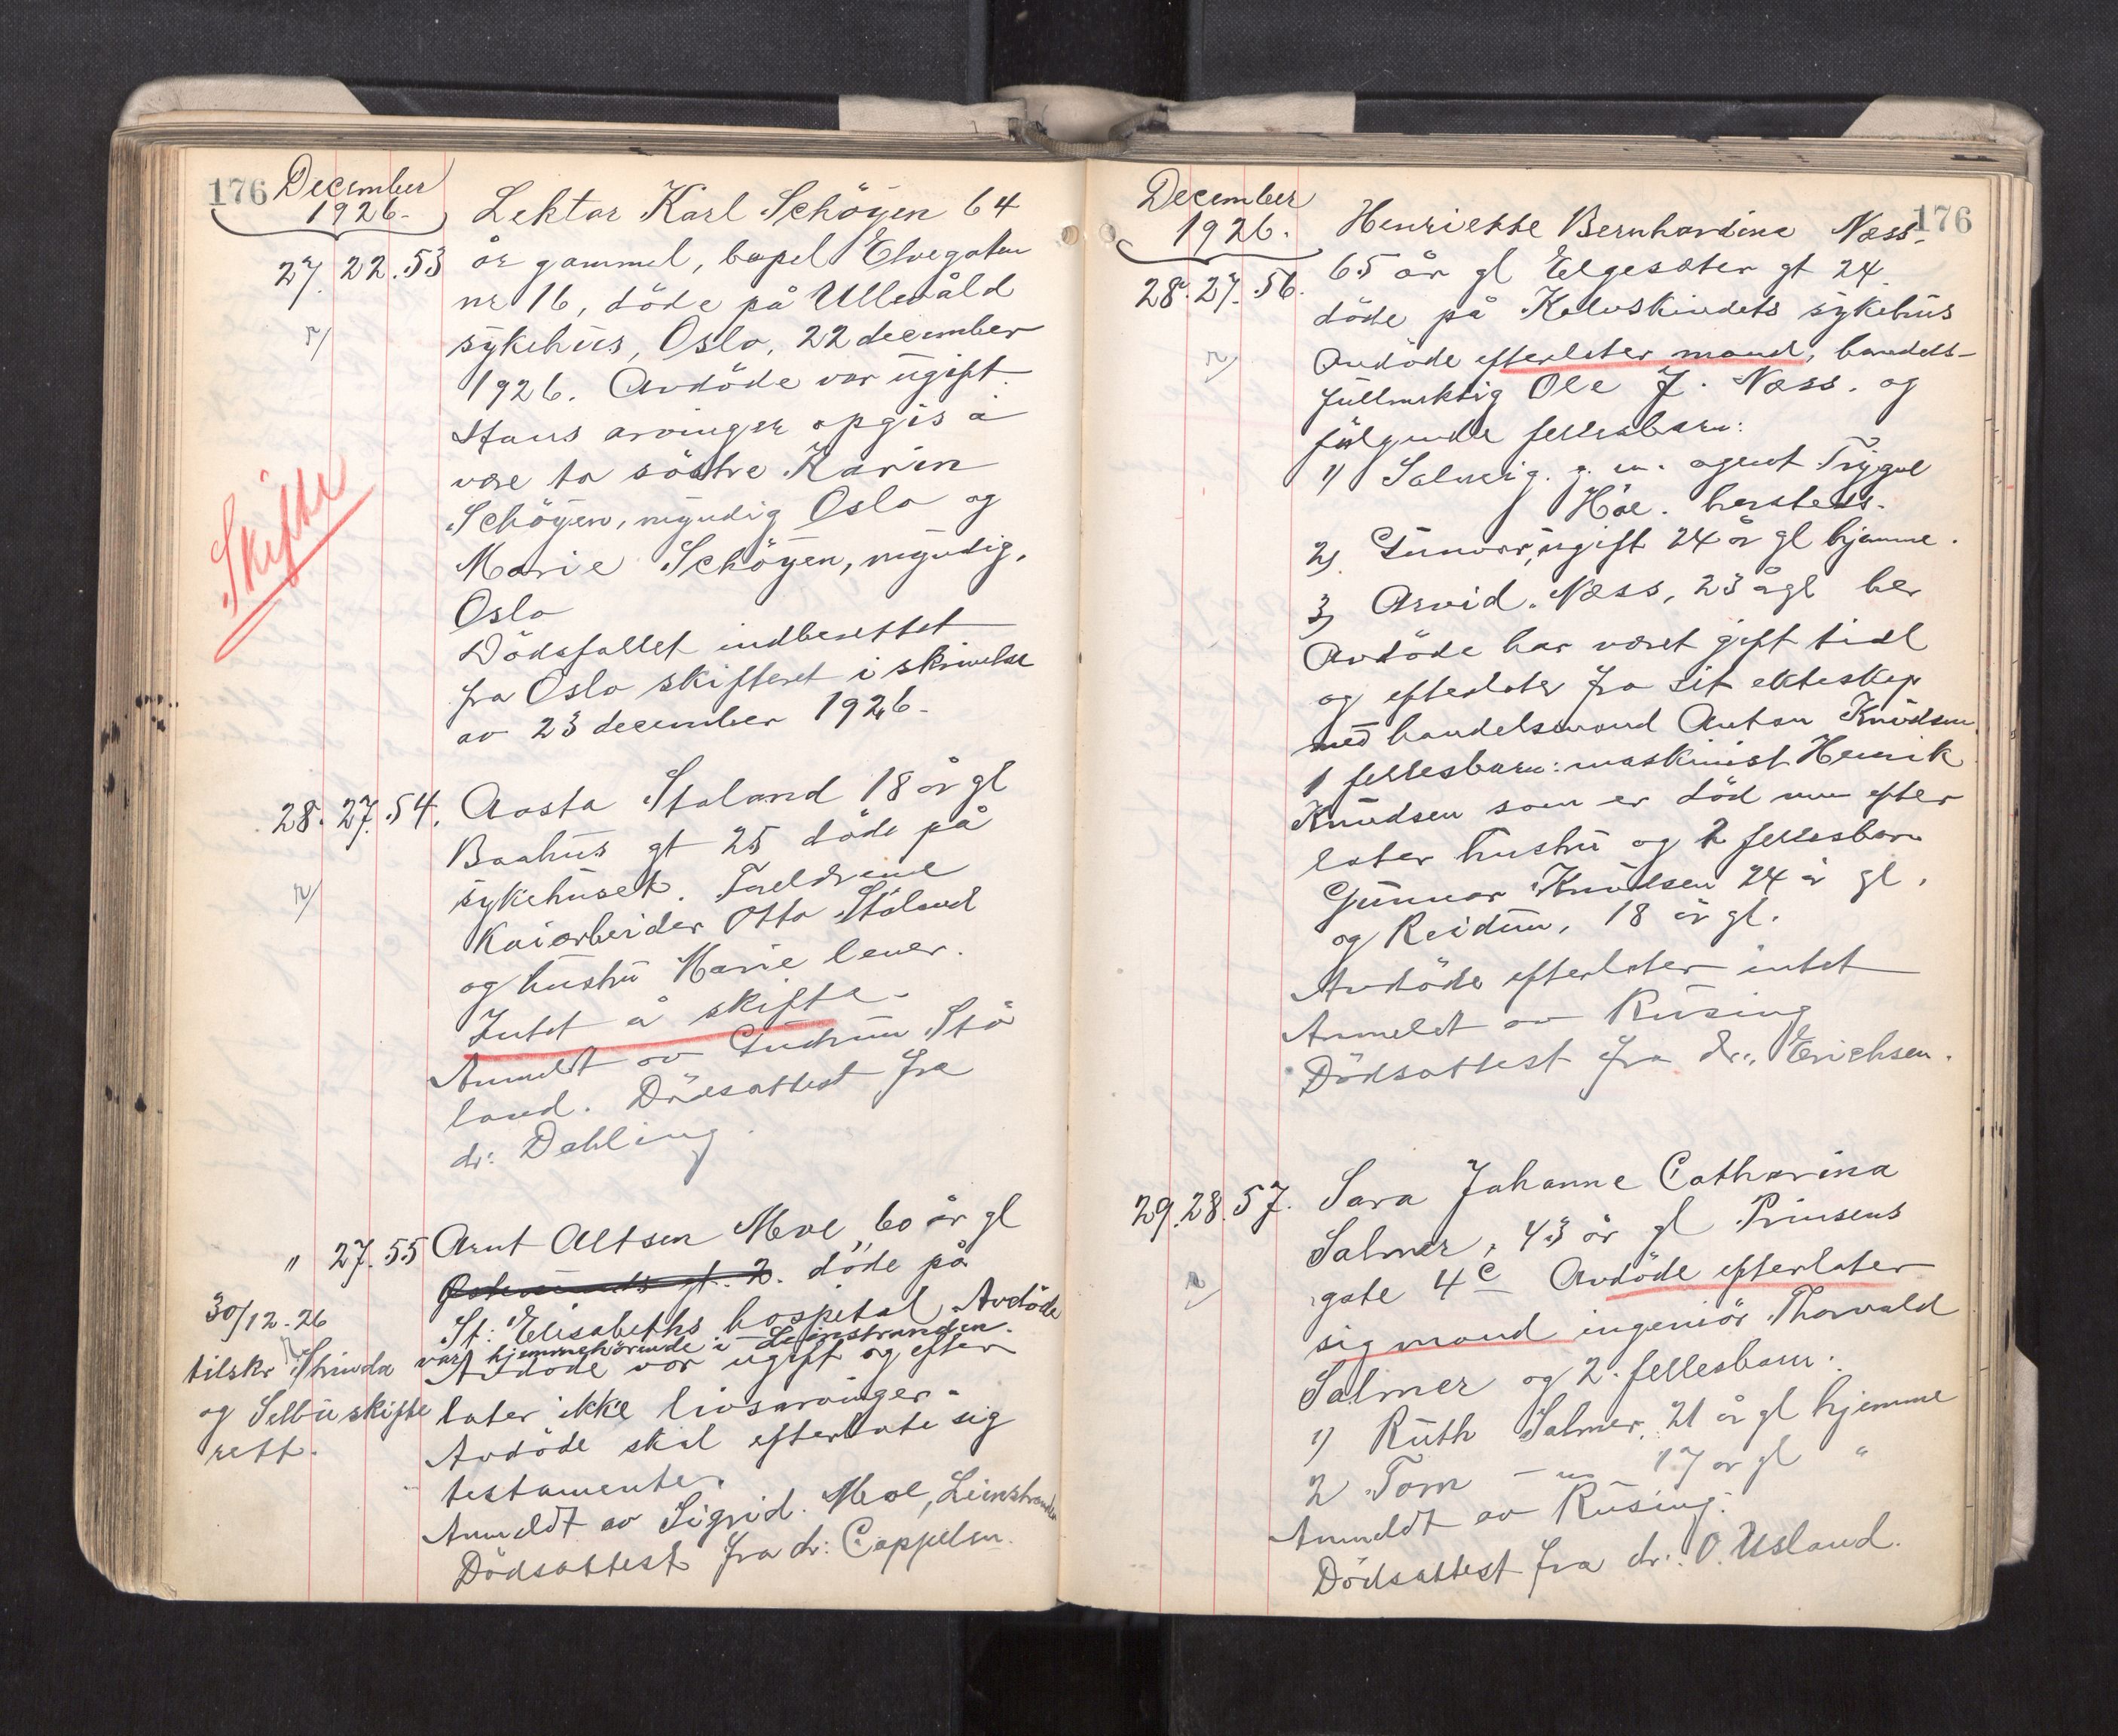 176 December
1926.
27. 22. 53 Lektor Karl Schöyen 64
år gammel, bopel Elvegaten
nr 16, döde på Ullevåld
sykehus, Oslo, 22 december
1926. Avdöde var ugift.
Hans arvinger opgis å
være to söstre Karin
Schöyen, myndig Oslo og
Marie Schöyen, myndig,
Oslo
Dödsfallet indberettet
fra Oslo skifteret i skrivelse
av 23 december 1926.
Skifte
28. 27. 54. Aasta Staland 18 år gl
Baahus gt 25 döde på
sykehuset. Foreldrene
Kaiarbeider Otto Staland
og hustru Marie lever.
Intet å skifte.
Anmeldt av Gudrun Stå
land. Dödsattest fra
dr: Dahling.
" 27. 55 Arnt Altsen Moe, 60 år gl
gt. 2. döde på
St: Elisabeths hospital. Avdöde
var hjemmehörende i Leinstranden.
Avdöde var ugift og efter
later ikke livsarvinger.
Avdöde skal efterlate sig
testamente.
Anmeldt av Sigrid Moe, Leinstranden
Dödsattest fra dr: Cappelen.
30/12-26
tilskr Strinda
og Selbu skifte
rett.
December 176
1926.
28. 27. 56. Henriette Bernhardine Næss.
65 år gl Elgesæter gt 24.
döde på Kalvskindets sykehus
Avdöde efterlater mand, handels-
fullmektig Ole J. Næss. og
fölgende fellesbarn:
1) Solveig. g. m. agent Trygve
Hoe. hersteds.
2) Gunvor, ugift 24 år gl hjemme.
3) Arvid. Næss, 23 å gl her
Avdöde har været gift tidl
og efterlater fra sit ekteskap
med handelsmand Anton Knudsen
1 fellesbarn: maskinist Henrik
Knudsen som er död men efter
later hustru og 2 fellesbarn
Gunnar Knudsen 24 år gl.
og Reidun, 18 år gl.
Avdöde efterlater intet
Anmeldt av Rusing
Dödsattest fra dr: Erichsen.
29. 28. 57. Sara Johanne Catharina
Salmer, 43 år gl Prinsens
gate 4c Avdöde efterlater
sig mand ingeniör Thorvald
Salmer og 2 fellesbarn.
1) Ruth Salmer, 21 år gl hjemme
2 Tom — " — 17 år gl "
Anmeldt av Rusing.
Dödsattest fra dr: O. Usland.